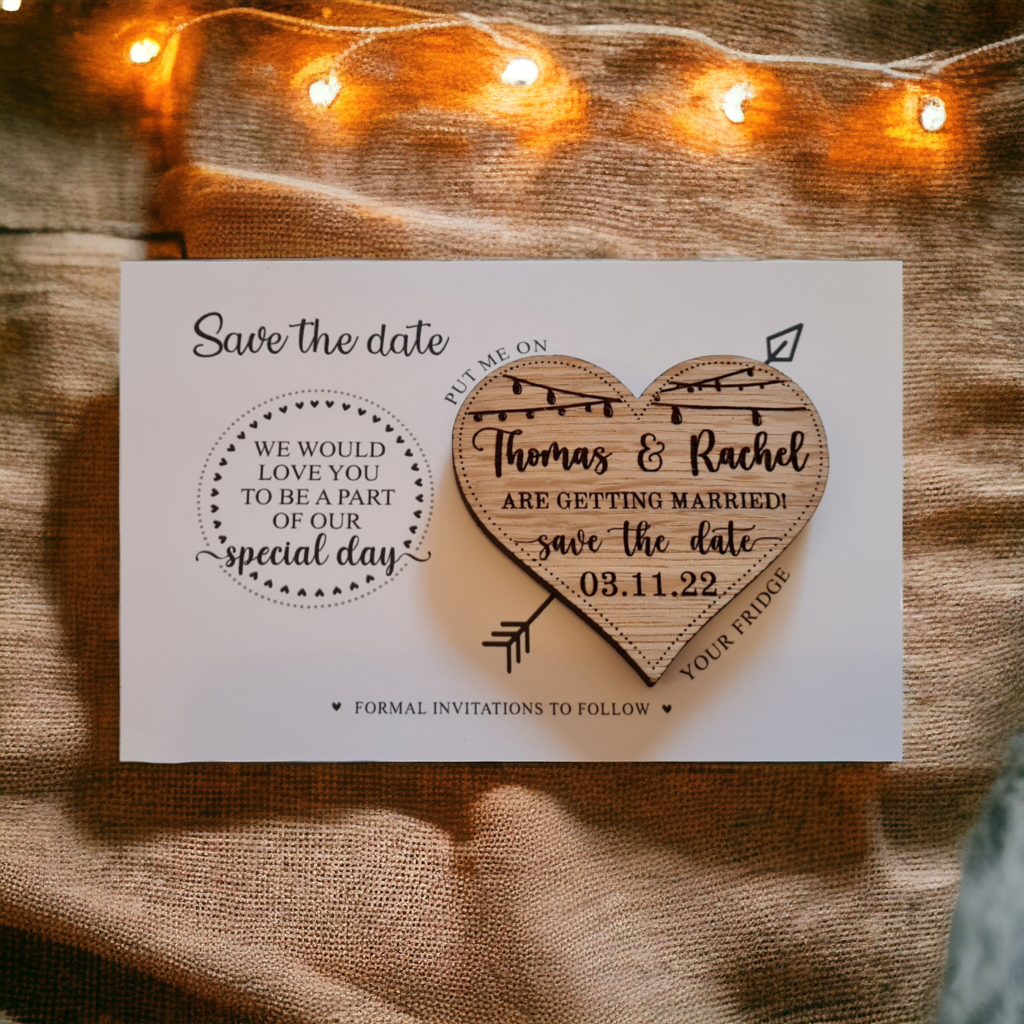 Save the date
WE WOULD
LOVE YOU
TO BE A PART
OF OUR
special day
PUT ME ON
Thomas & Rachel
ARE GETTING MARRIED!
save the date
03.11.22
YOUR FRIDGE
FORMAL INVITATIONS TO FOLLOW